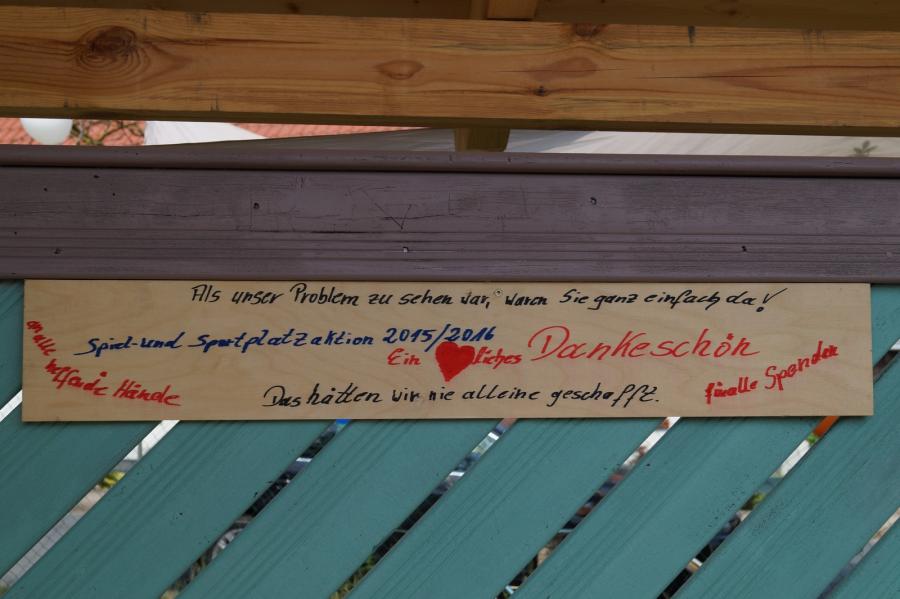 Als unser Problem zu sehen war, waren Sie ganz einfach da!
Spiel-und Sportplatzaktion 2015/2016
Ein ❤liches Dankeschön
an alle helfende Hände
für alle Spenden
Das hätten wir nie alleine geschafft.